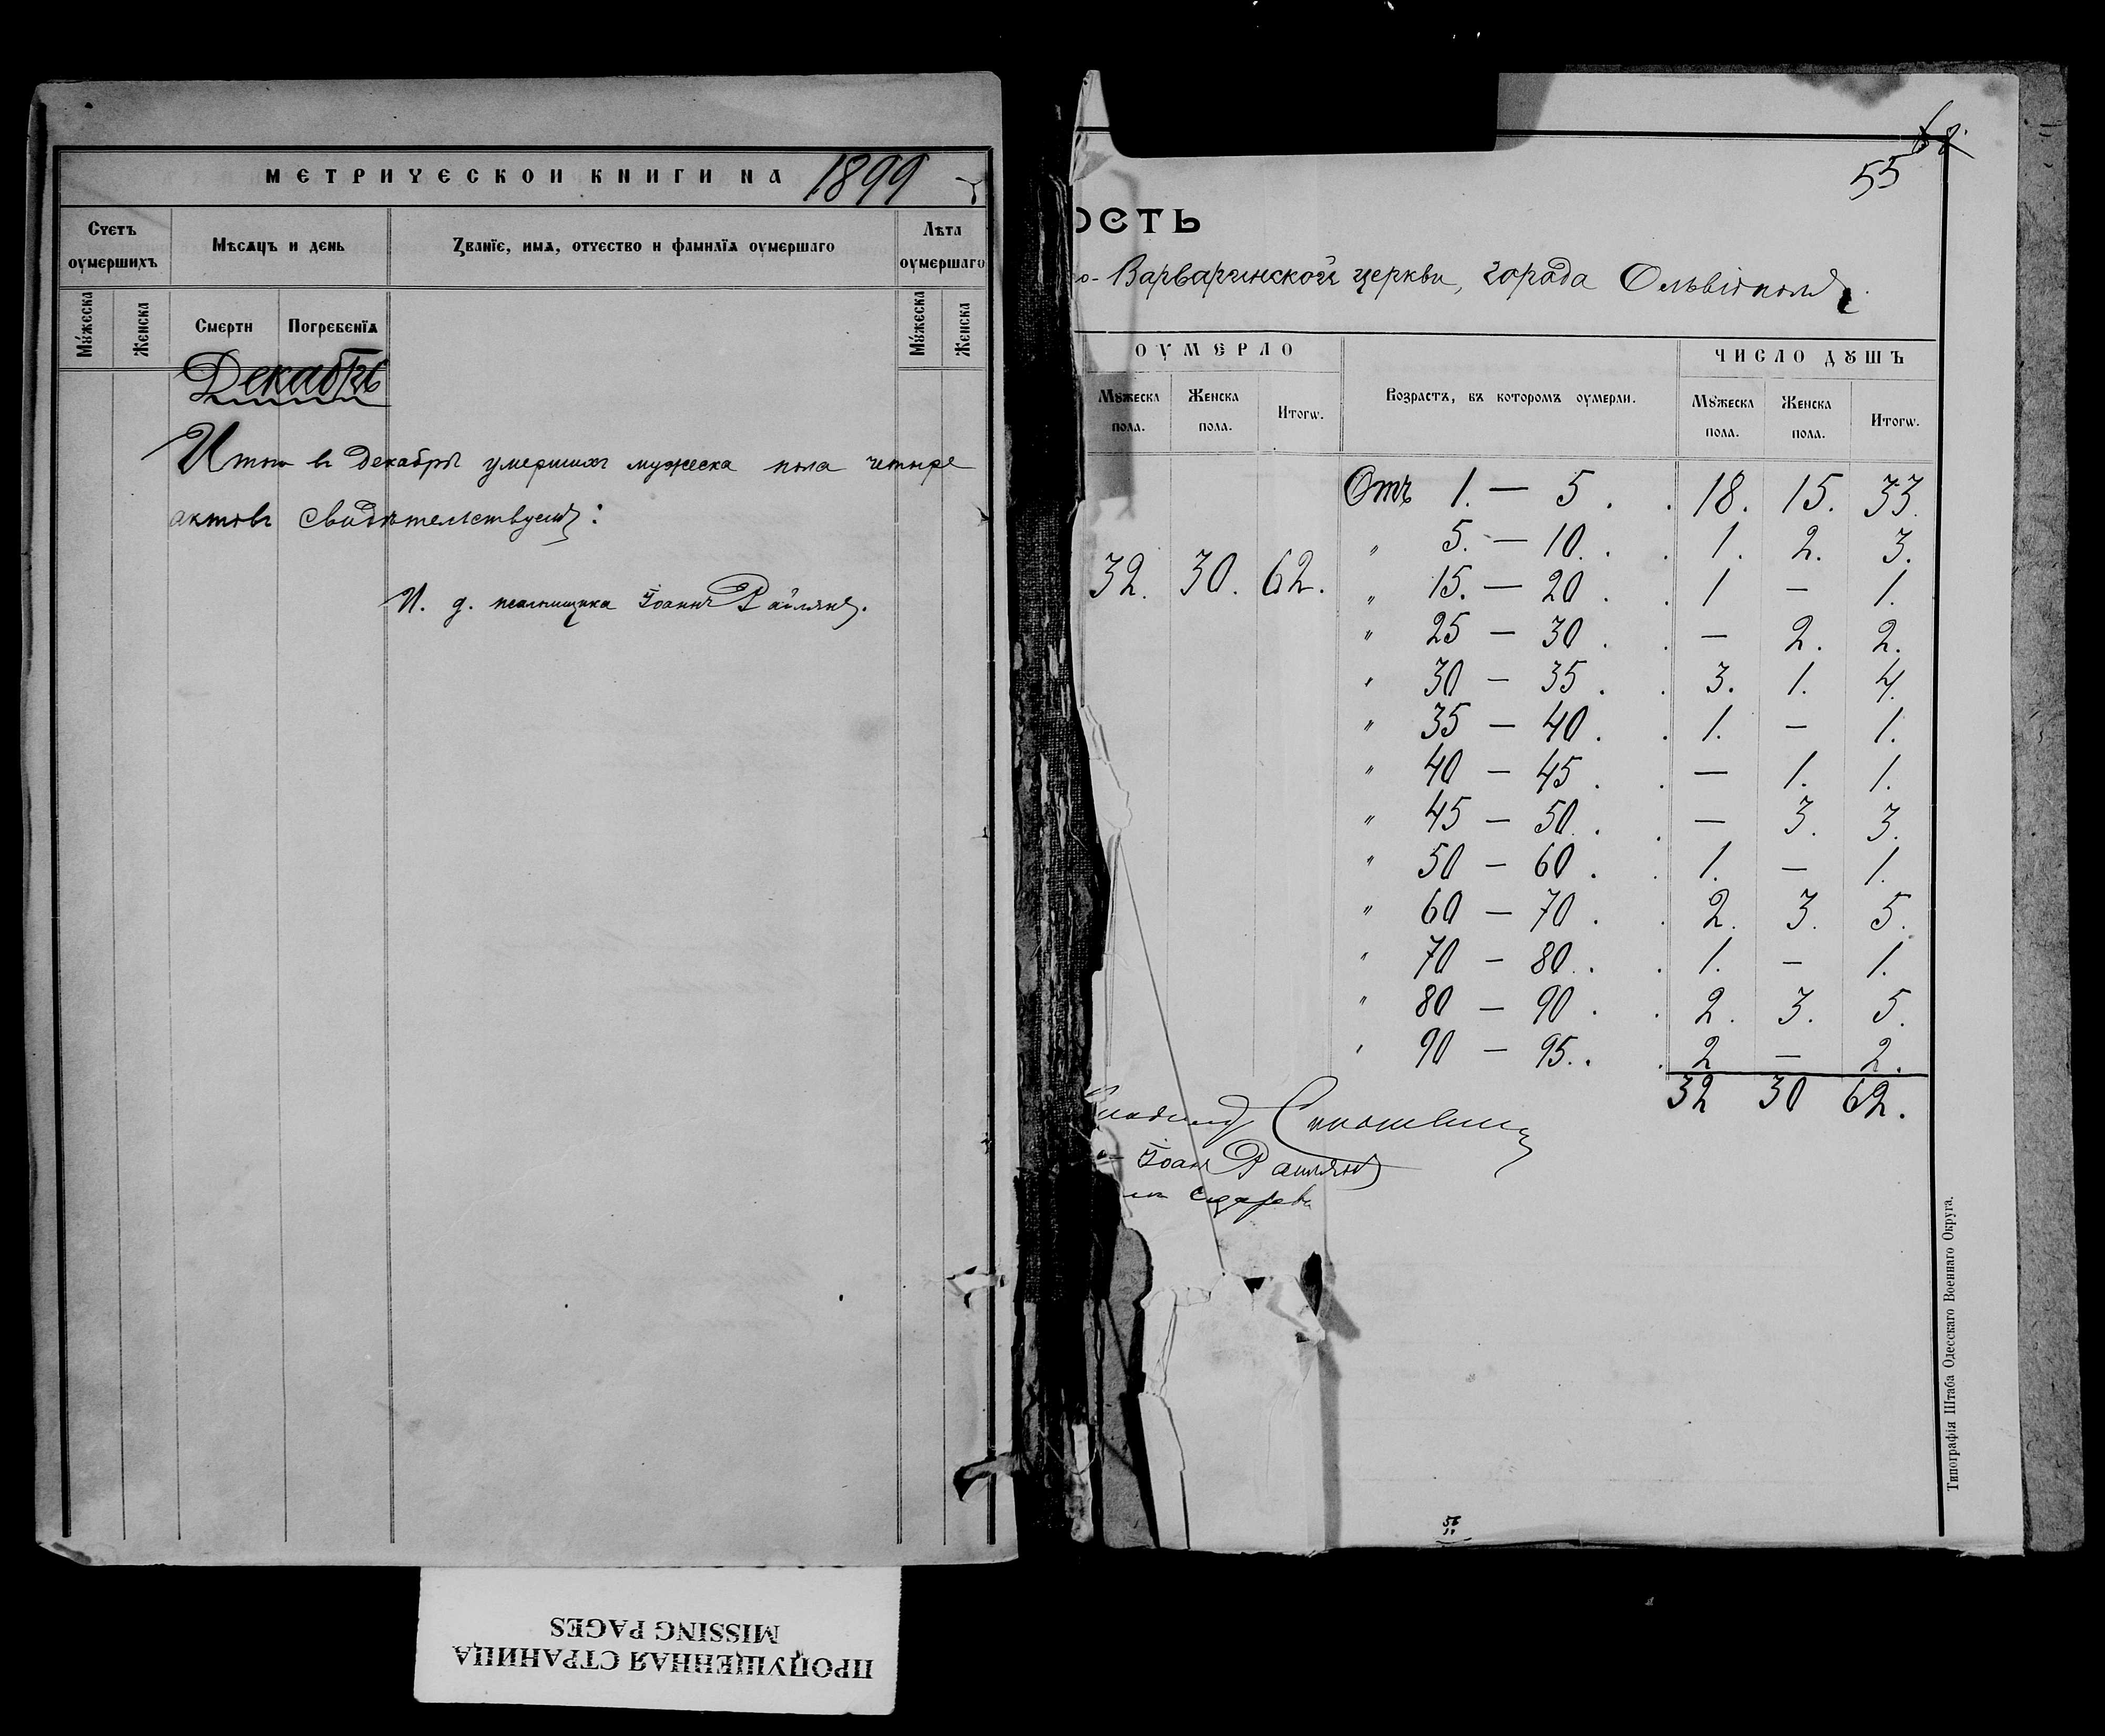 МЕТРИЧЕСКОИ КНИГИ НА 1899
Счетъ оумершихъ
Мѣсяцъ и день
Званїе, имя, отчество и фамилїя оумершаго
Лѣта оумершаго
Мꙋжеска
Женска
Смерти
Погребенїя
Мꙋжеска
Женска
Декабрь
Итого въ Декабрѣ умершихъ мужеска пола четыре
актовъ свидѣтельствуетъ:
И. д. псаломщика Іоаннъ Райлянъ.
68
55
ОСТЬ
о-Варваринской церкви, города Ольвіополя.
ОУМЕРЛО
Мꙋжеска пола.
Женска пола.
Итогѡ.
Возрастъ, въ которомъ оумерли.
ЧИСЛО ДꙊШЪ
Мꙋжеска пола.
Женска пола.
Итогѡ.
32. 30. 62.
Отъ 1. — 5 . . 18. 15. 33.
„ 5. — 10. . . 1. 2. 3.
„ 15. — 20 . . 1 — 1.
„ 25 — 30 . . — 2. 2.
„ 30 — 35 . . 3. 1. 4.
„ 35 — 40 . . 1. — 1.
„ 40 — 45 . . — 1. 1.
„ 45 — 50. . . — 3. 3.
„ 50 — 60 . . 1. — 1.
„ 60 — 70 . . 2. 3. 5.
„ 70 — 80. . . 1. — 1.
„ 80 — 90 . . 2. 3. 5.
„ 90 — 95. . . 2 — 2.
32 30 62.
Іоаннъ Райлянъ
Типографія Штаба Одесскаго Военнаго Округа.
56
ПРОПУЩЕННАЯ СТРАНИЦА
MISSING PAGES